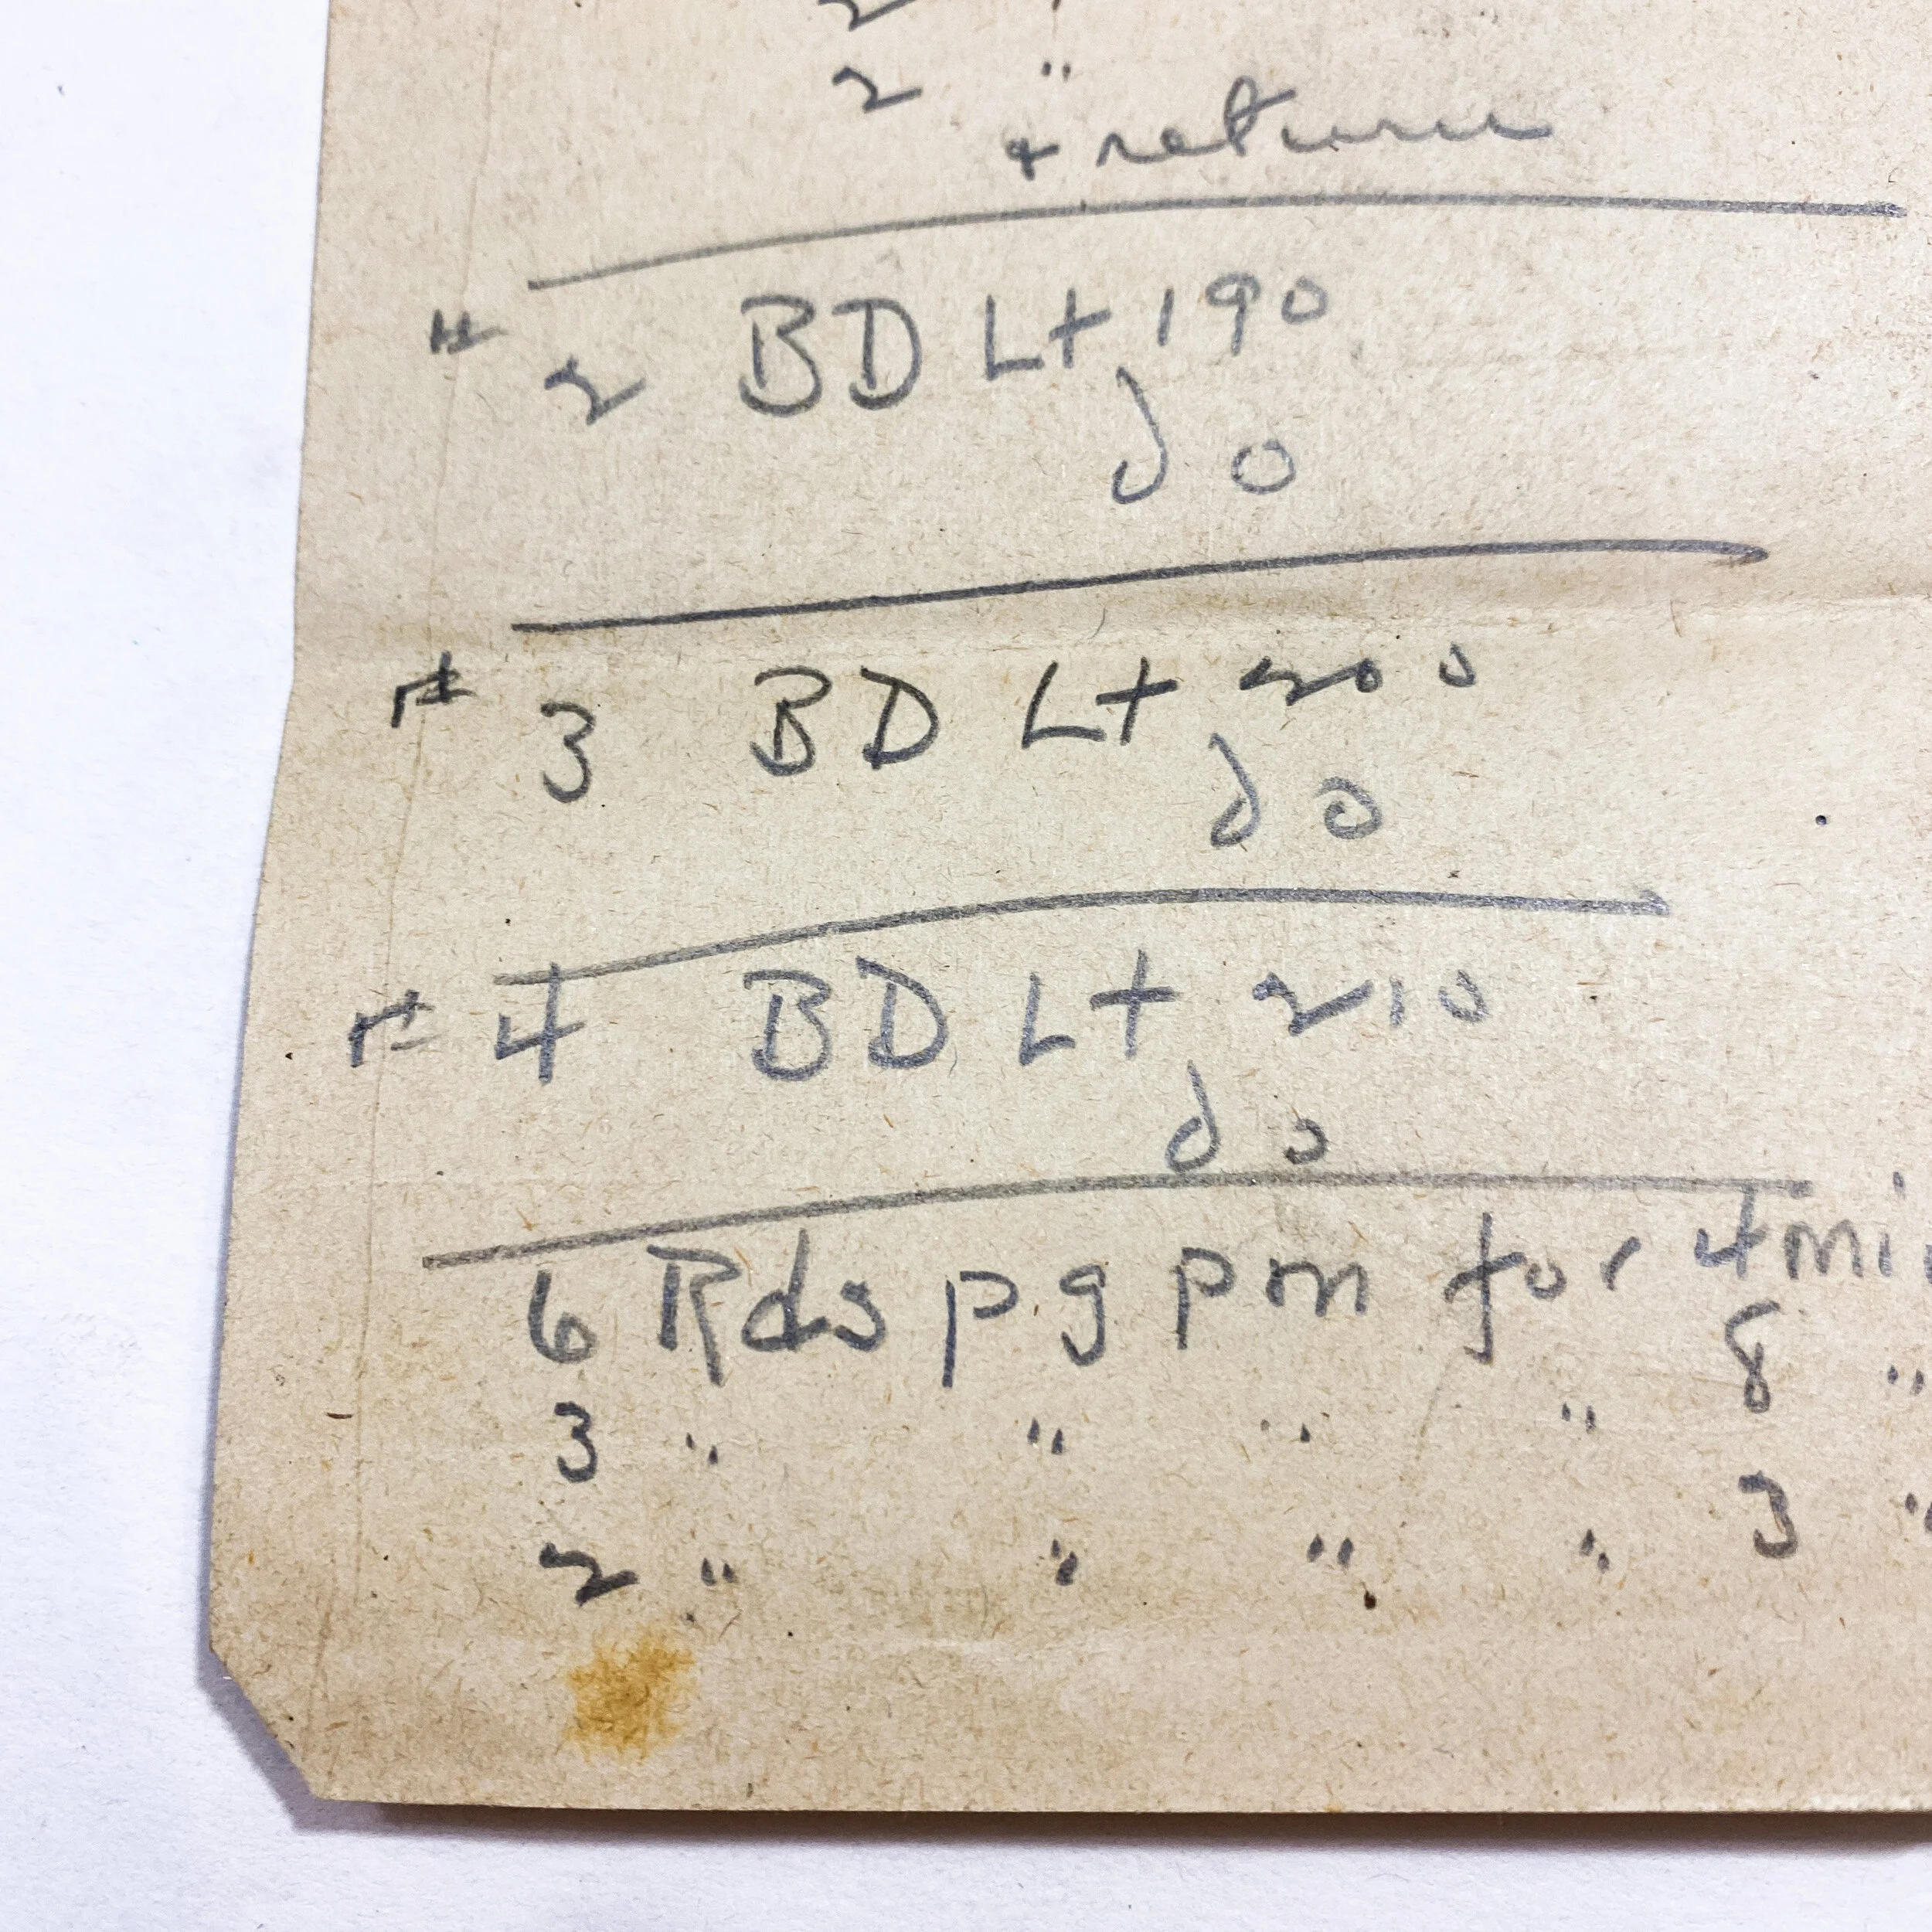 2
2 "
+ return
# 2 BD Lt 190
do
# 3 BD Lt 200
do
# 4 BD Lt 210
do
6 Rds pg pm for 4 min
3 " " " " 8 "
2 " " " " 3 "